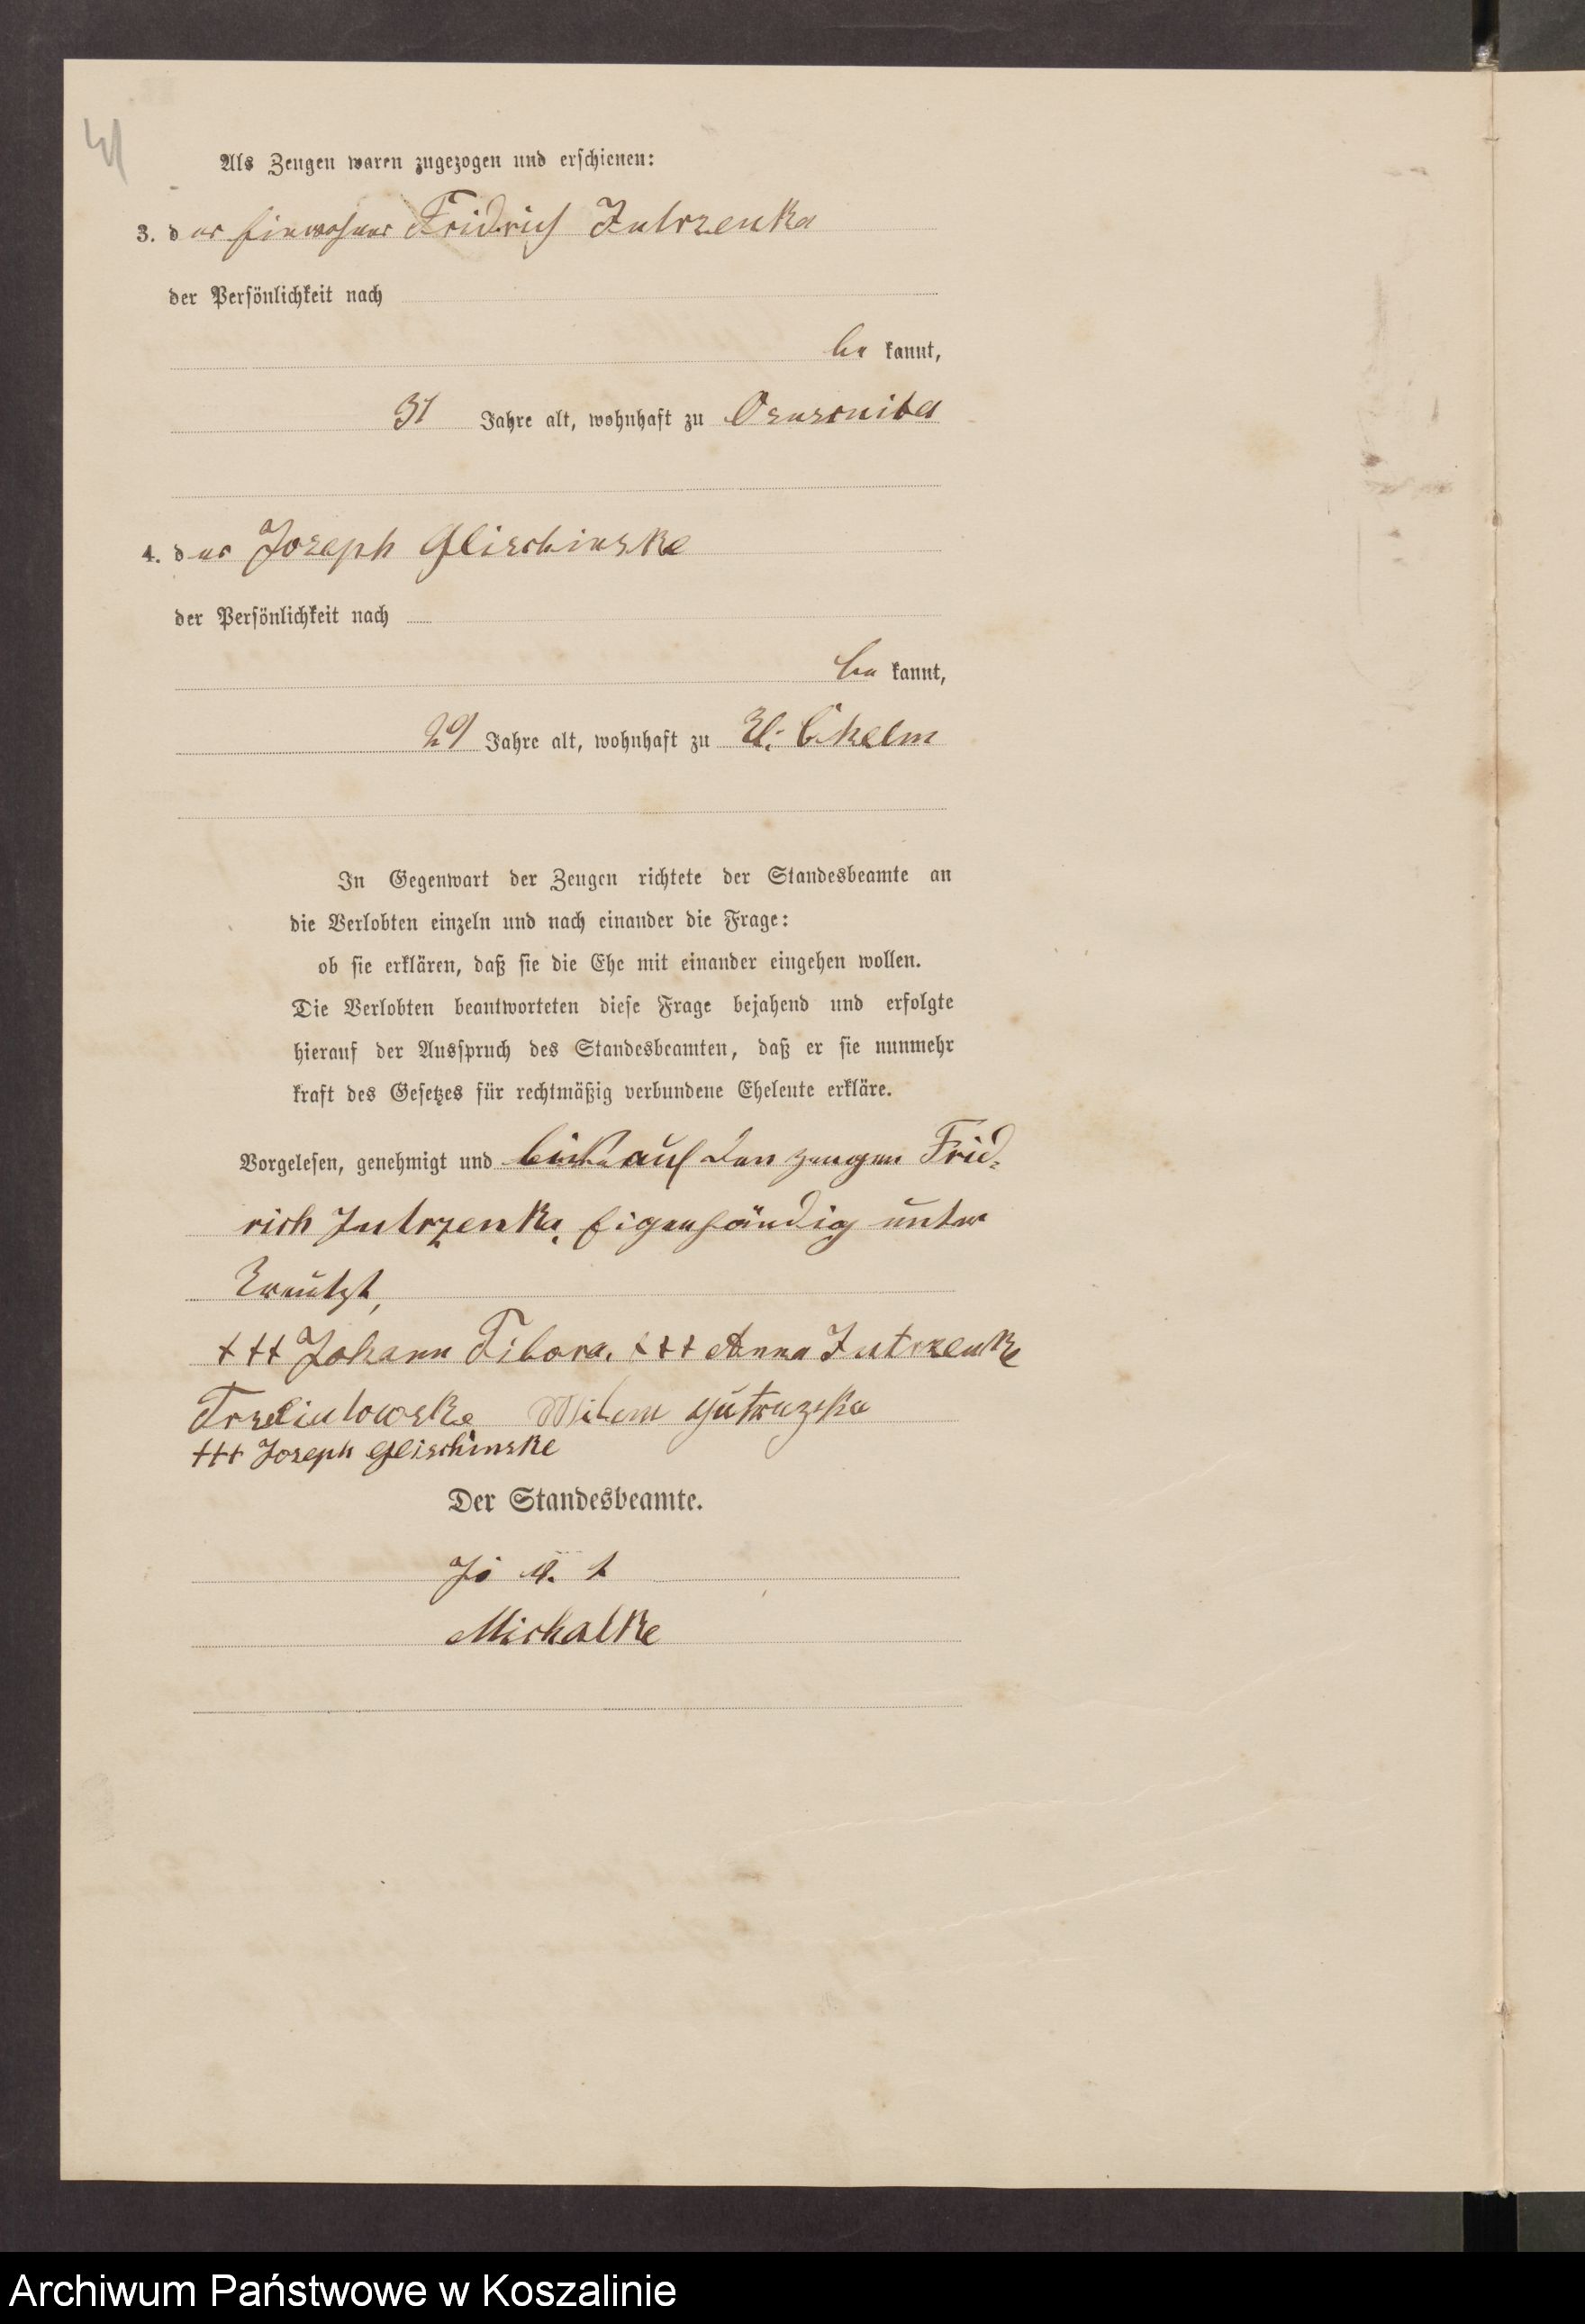 41
Als Zeugen waren zugezogen und erschienen:
3. der Einwohner Fridrich Jutrzenka
der Persönlichkeit nach
be kannt,
31 Jahre alt, wohnhaft zu Ossusnitza
4. der Joseph Glischinske
der Persönlichkeit nach
be kannt,
29 Jahre alt, wohnhaft zu Kl. Chelm
In Gegenwart der Zeugen richtete der Standesbeamte an
die Verlobten einzeln und nach einander die Frage:
ob sie erklären, daß sie die Ehe mit einander eingehen wollen.
Die Verlobten beantworteten diese Frage bejahend und erfolgte
hierauf der Ausspruch des Standesbeamten, daß er sie nunmehr
kraft des Gesetzes für rechtmäßig verbundene Eheleute erkläre.
Vorgelesen, genehmigt und auf den zeugen Frid-
rich Jutrzenka, Eigenhändig unter
Kreutzt,
+++ Johann Tibora. +++ Anna Jutrzenke
Jutrzenka
+++ Joseph Glischinske
Der Standesbeamte.
Michalke
Archiwum Państwowe w Koszalinie